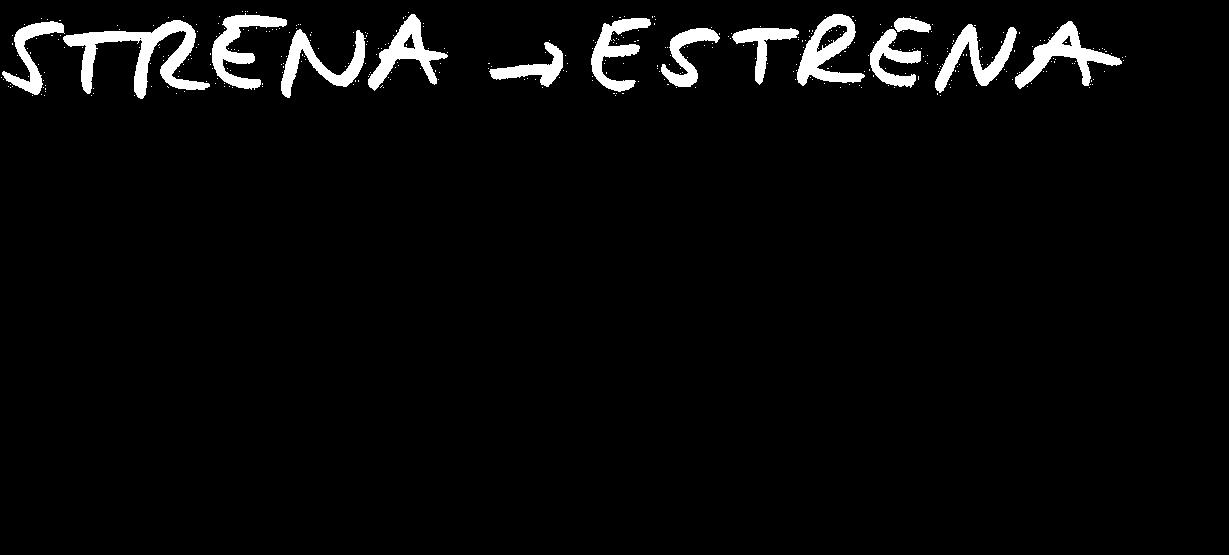 STRENA → ESTRENA